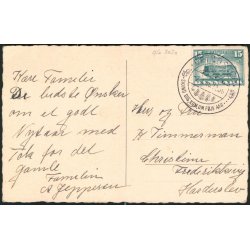 Kære Familie
De bedste Ønsker
om et godt
Nytaar med
Tak for det
gamle
Familien
A Jeppesen
Hr og Fru
K Timmerman
Christine
Frederiksvej
Haderslev
15
DANMARK